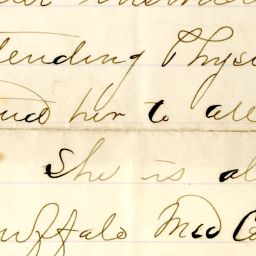 tending Physi
her to all
She is al
uffalo Med Co